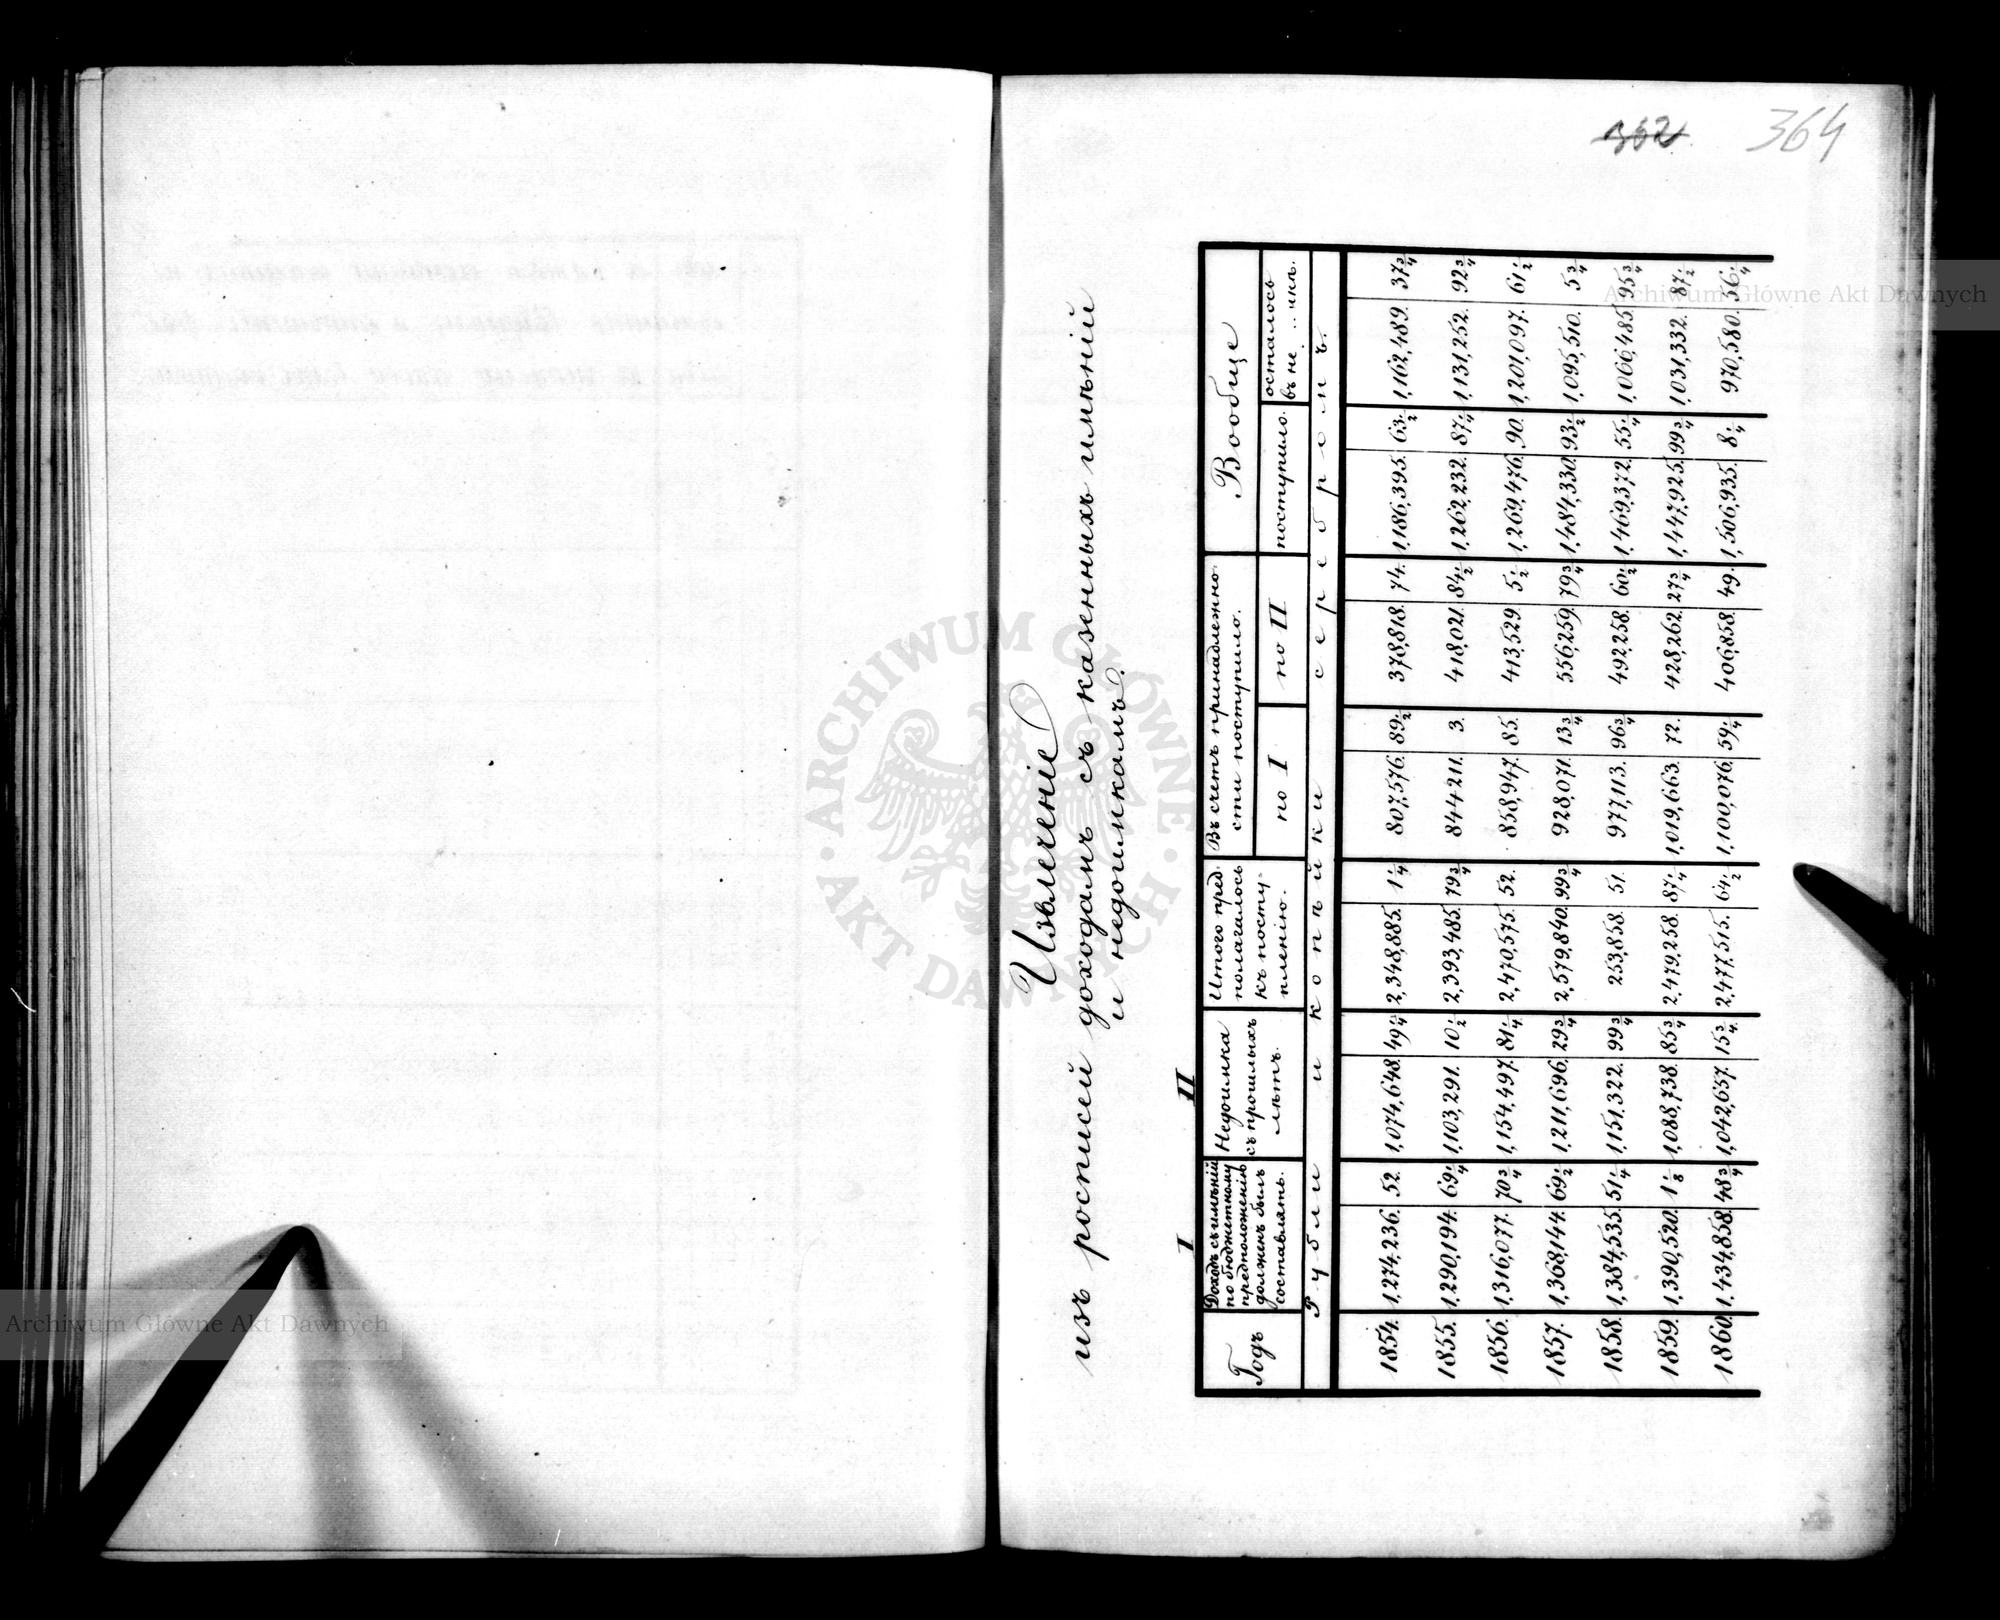 362 364
Извлеченіе
изъ росписей доходамъ съ казенныхъ имѣній
и недоимкамъ.
I II
Годъ
Доходъ съ имѣній
по бюджетному
предположенію
долженъ былъ
составлять.
Недоимка
съ прошлыхъ
лѣтъ.
Итого пред-
полагалось
къ посту=
пленію.
Въ счетъ принадлежно-
сти поступило.
по I по II
Вообще
поступило.
осталось
въ не
Рубли и копѣйки серебромъ
1854. 1,274,236. 52. 1,074,648. 49 1/4 2,348,885. 1 1/4 807,576. 89 1/2 378,818. 74. 1,186,395. 63 1/2 1,162,489. 37 3/4
1855. 1,290,194. 69 1/4 1,103,291. 10 1/2 2,393,485. 79 3/4 844,211. 3. 418,021. 84 1/2 1,262,232. 87 1/4 1,131,252. 92 3/4
1856. 1,316,077. 70 3/4 1,154,497. 81 1/4 2,470,575. 52. 858,947. 85. 413,529. 5 1/2 1,269,476. 90. 1,201,097. 61 1/2
1857. 1,368,144. 69 1/2 1,211,696. 29 3/4 2,579,840. 99 3/4 928,071. 13 3/4 556,259. 79 3/4 1,484,330. 93 1/2 1,095,510. 5 3/4
1858. 1,384,535. 51 1/4 1,151,322. 99 3/4 253,858. 51. 977,113. 96 3/4 492,258. 60 1/2 1,469,372. 55 1/4 1,066,485. 95 3/4
1859. 1,390,520. 1 1/8 1,088,738. 85 3/4 2,479,258. 87 1/4 1,019,663. 72. 428,262. 27 3/4 1,447,925. 99 3/4 1,031,332. 87 1/2
1860. 1,434,858. 48 3/4 1,042,657. 15 3/4 2,477,515. 64 1/2 1,100,076. 59 1/4 406,858. 49. 1,506,935. 8 1/4 970,580. 56 1/4
Archiwum Główne Akt Dawnych
ARCHIWUM GŁÓWNE AKT DAWNYCH
Archiwum Główne Akt Dawnych